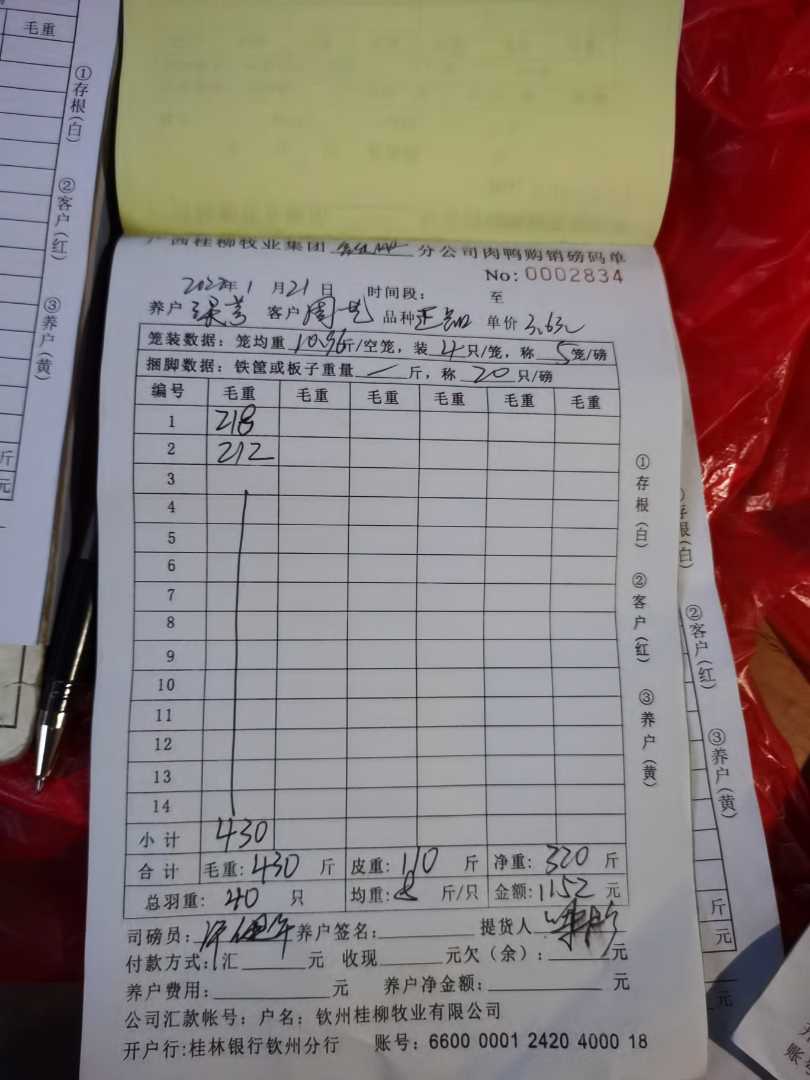 毛重
①存根(白)
②客户(红)
③养户(黄)
斤
元
广西桂柳牧业集团 分公司肉鸭购销磅码单
No: 0002834
2022年1月21日 时间段： 至
养户 客户 周 品种 正品 单价
笼装数据：笼均重 10.96斤/空笼，装 4 只/笼，称 5笼/磅
捆脚数据：铁筐或板子重量 斤，称 20 只/磅
编号 毛重 毛重 毛重 毛重 毛重 毛重
1 218
2 212
3
4
5
6
7
8
9
10
11
12
13
14
小计 430
合计 毛重: 430 斤 皮重: 110 斤 净重: 320 斤
总羽重: 40 只 均重: 8 斤/只 金额: 1152 元
司磅员: 养户签名: 提货人
付款方式: 汇 元 收现 元欠（余）: 元
养户费用: 元 养户净金额: 元
公司汇款帐号：户名：钦州桂柳牧业有限公司
开户行:桂林银行钦州分行 账号：6600 0001 2420 4000 18
①存根(白)
②客户(红)
③养户(黄)
存根(白)
②客户(红)
③养户(黄)
斤
元
元